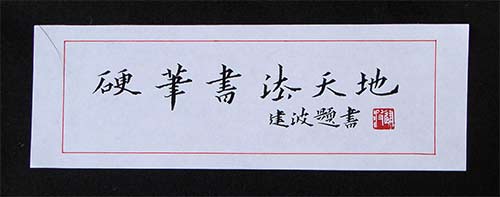 硬筆書法天地
建波題書